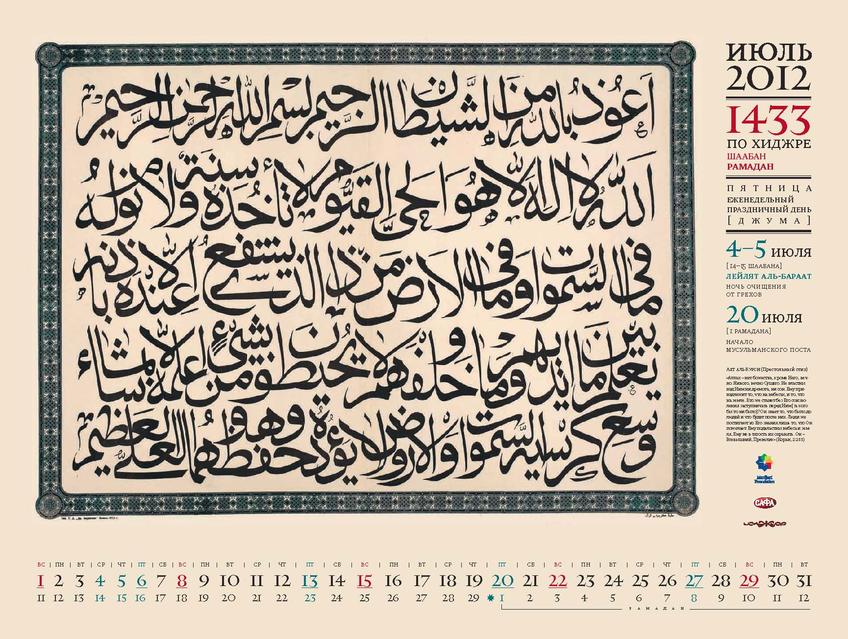 اعوذ بالله من الشيطان الرجيم بسم الله الرحمن الرحيم
الله لا اله الا هو الحي القيوم لا تاخذه سنة ولا نوم له
ما في السموات وما في الارض من ذا الذي يشفع عنده الا باذنه
يعلم ما بين ايديهم وما خلفهم ولا يحيطون بشيء من علمه الا بما شاء
وسع كرسيه السموات والارض ولا يؤده حفظهما وهو العلي العظيم
ИЮЛЬ
2012
1433
ПО ХИДЖРЕ
ШААБАН
РАМАДАН
ПЯТНИЦА
ЕЖЕНЕДЕЛЬНЫЙ
ПРАЗДНИЧНЫЙ ДЕНЬ
[ДЖУМА]
4–5 ИЮЛЯ
[14–15 ШААБАНА]
ЛЕЙЛЯТ АЛЬ-БАРААТ
НОЧЬ ОЧИЩЕНИЯ
ОТ ГРЕХОВ
20 ИЮЛЯ
[1 РАМАДАНА]
НАЧАЛО
МУСУЛЬМАНСКОГО ПОСТА
САФА
ВС | ПН | ВТ | СР | ЧТ | ПТ | СБ | ВС | ПН | ВТ | СР | ЧТ | ПТ | СБ | ВС | ПН | ВТ | СР | ЧТ | ПТ | СБ | ВС | ПН | ВТ | СР | ЧТ | ПТ | СБ | ВС | ПН | ВТ
1 2 3 4 5 6 7 8 9 10 11 12 13 14 15 16 17 18 19 20 21 22 23 24 25 26 27 28 29 30 31
11 12 13 14 15 16 17 18 19 20 21 22 23 24 25 26 27 28 29 1 2 3 4 5 6 7 8 9 10 11 12
РАМАДАН